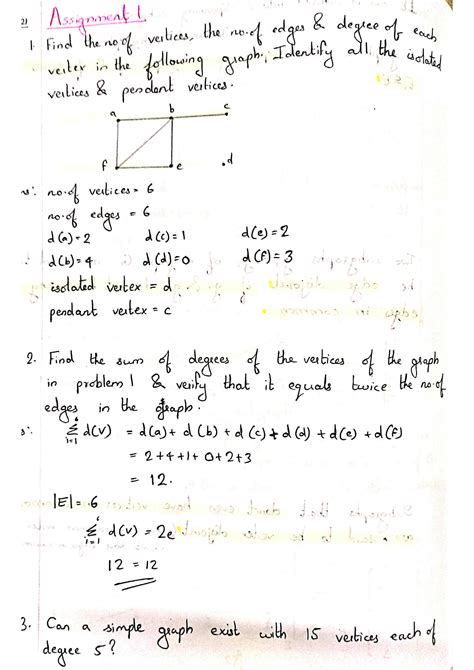 21 Assignment 1
1. Find the no.of vertices, the no.of edges & degree of each
vertex in the following graph. Identify all the isolated
vertices & pendant vertices.
a b c
f e .d
no.of vertices = 6
no.of edges = 6
d(a)=2 d(c)=1 d(e)=2
d(b)=4 d(d)=0 d(f)=3
isolated vertex = d
pendant vertex = c
2. Find the sum of degrees of the vertices of the graph
in problem 1 & verify that it equals twice the no.of
edges in the graph.
s: 6 Σ i=1 d(V) = d(a)+ d(b) + d(c) + d(d) + d(e) + d(f)
= 2+4+1+0+2+3
= 12.
|E| = 6
6 Σ i=1 d(V) = 2e
12 = 12
3. Can a simple graph exist with 15 vertices each of
degree 5?